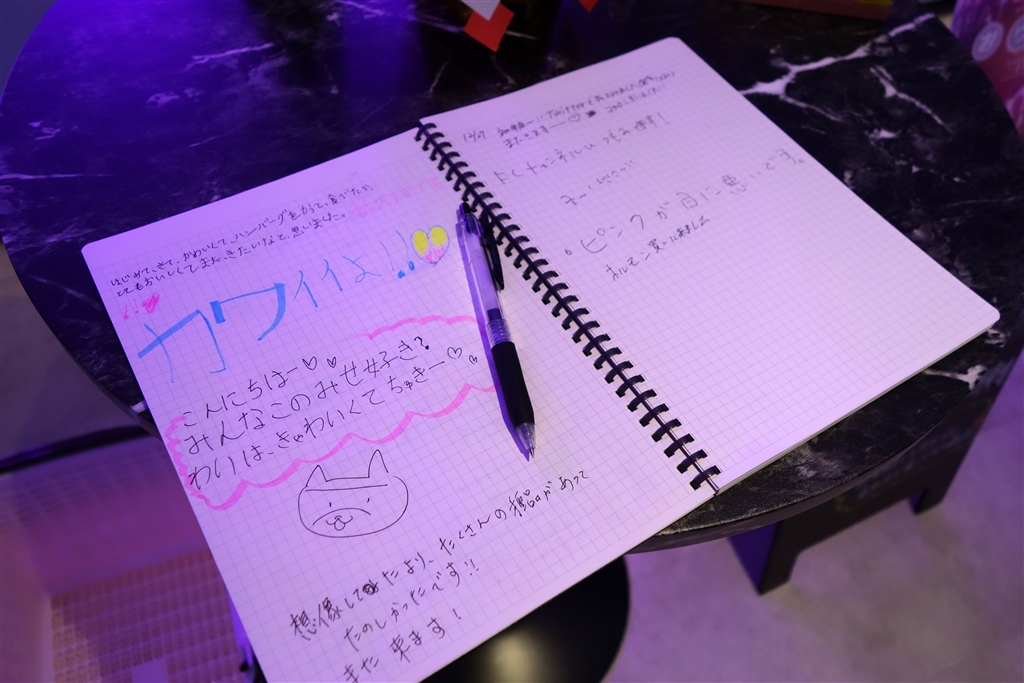 はじめて、きて、かわいくて、ハンバーグをかって、食べたが、
とてもおいしくてまた、きたいなと、思いました。
!!
カワイイよ!!
こんにちはー♡♡
みんなこのみせ好き?
わいは、きゃわいくてちゅきー♡。
想像してたより、たくさんの種品があって
たのしかったです!!
また来ます!
12/27
また、きますー♡
ドくチャンネルい
ピンクが目に悪いです。
ホルモン買いに来ました